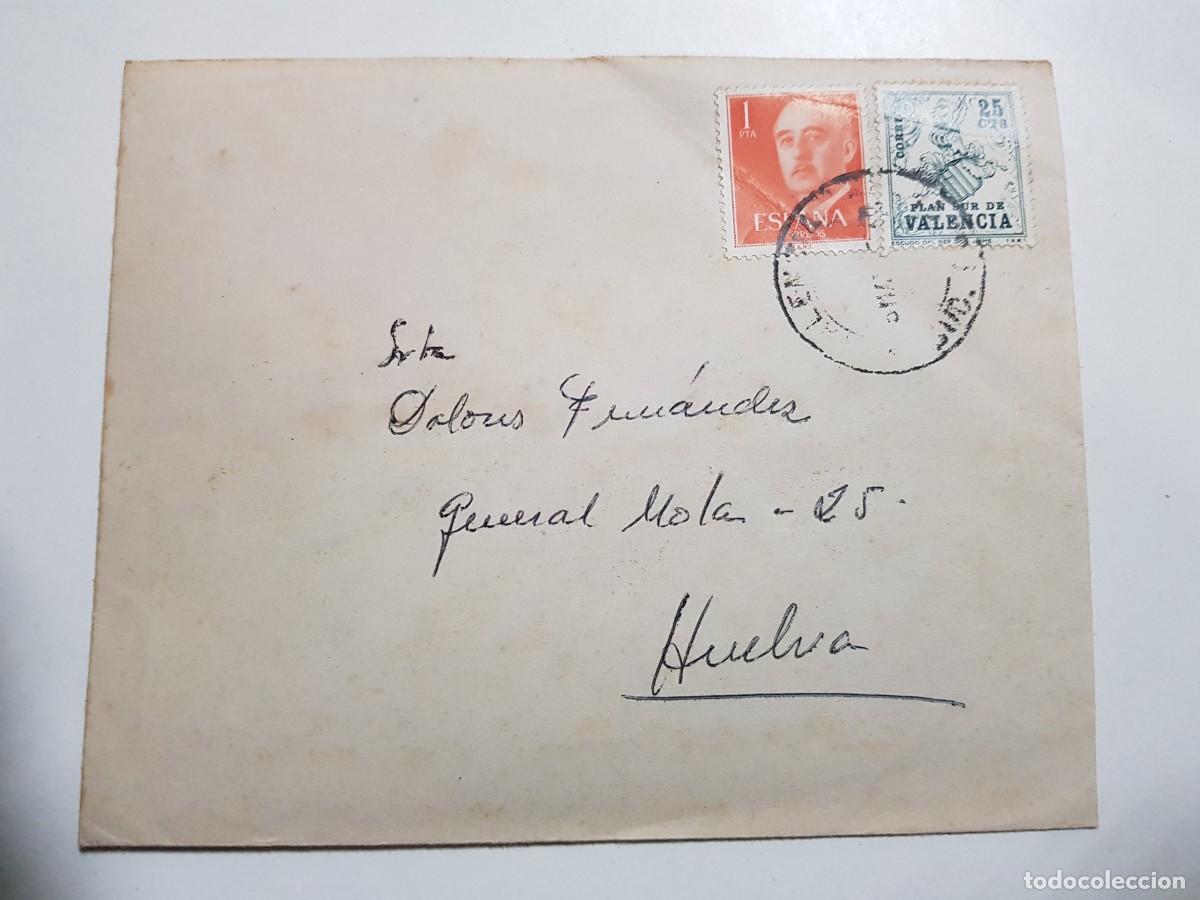 1
PTA
ESPAÑA
CORREOS
F.N.M.T.
25
CTS
CORREOS
PLAN SUR DE
VALENCIA
ESCUDO DEL REY DON JAIME F.N.M.T.
Srta
Dolores Fernández
General Mola - 25.
Huelva
todocoleccion